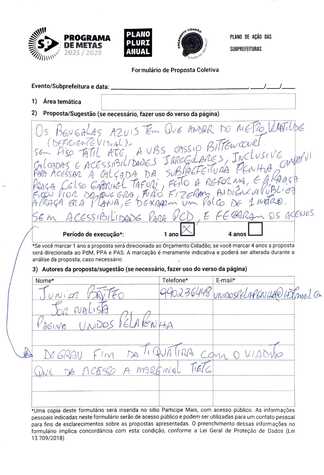 PROGRAMA
DE METAS
2025 / 2028
PLANO
PLURI
ANUAL
PLANO DE AÇÃO DAS
SUBPREFEITURAS
Formulário de Proposta Coletiva
Evento/Subprefeitura e data: ____/____/____
1) Área temática
2) Proposta/Sugestão (se necessário, fazer uso do verso da página)
OS BENGALAS AZUIS TEM QUE ANDAR DO METRO VILA MATILDE
(DEFICIENTE VISUAL)
SEM PISO TATIL ATE A UBS
CALÇADAS E ACESSIBILIDADES IRREGULARES, INCLUSIVE
POR ACESSAR A CALÇADA DA SUBPREFEITURA PENHA
PRAÇA CELSO GABRIEL TAFURI, FEITO A REFORMA, E A PRAÇA
NÃO FIZERAM AUDIENCIA PUBLICA
A PRAÇA ERA PLANA, E DEIXARAM UM PALCO DE 1 METRO.
SEM ACESSIBILIDADE PARA PCD, E FECHARAM OS ACESSOS
Período de execução*: 1 ano X 4 anos
*Se você marcar 1 ano a proposta será direcionada ao Orçamento Cidadão; se você marcar 4 anos a proposta
será direcionada ao PdM, PPA e PAS. A marcação é meramente indicativa e poderá ser alterada durante a
análise da proposta, caso necessário
3) Autores da proposta/sugestão (se necessário, fazer uso do verso da página)
Nome* Telefone* E-mail*
JUNIOR
JORNALISTA
PAGINA UNDOS PELA PENHA
DEGRAU FIM DA TIQUATIRA COM O VIADUTO
QUE DA ACESSO A MARGINAL TIETE
*Uma cópia deste formulário será inserida no sítio Participe Mais, com acesso público. As informações
pessoais indicadas neste formulário serão de acesso público e podem ser utilizadas para um contato pessoal
para fins de esclarecimentos sobre as propostas apresentadas. O preenchimento dessas informações no
formulário implica concordância com esta condição, conforme a Lei Geral de Proteção de Dados (Lei
13.709/2018)